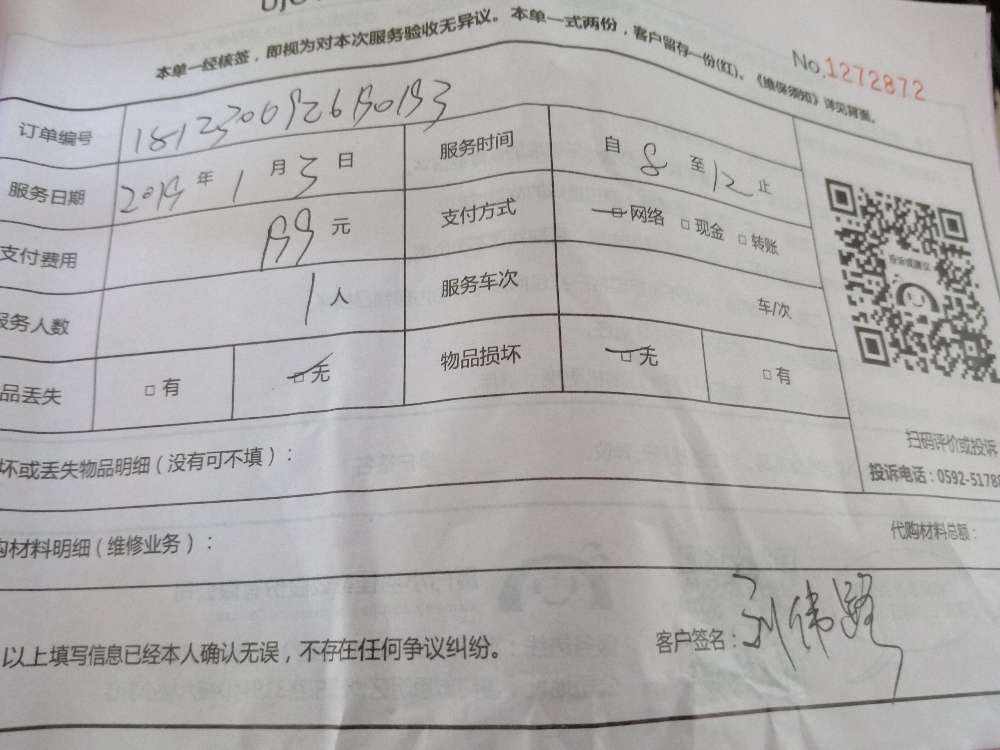 本单一经核签，即视为对本次服务验收无异议。本单一式两份，客户留存一份(红)。《维保须知》详见背面。
No.1272872
订单编号
服务日期 2019 年 1 月 3 日 服务时间 自 8 至 12 止
支付费用 99 元 支付方式 □网络 □现金 □转账
服务人数 1 人 服务车次 车/次
品丢失 □有 □无 物品损坏 □无 □有
投诉或建议
扫码评价或投诉
投诉电话：0592-5178
坏或丢失物品明细（没有可不填）：
购材料明细（维修业务）： 代购材料总额：
以上填写信息已经本人确认无误，不存在任何争议纠纷。 客户签名：刘伟